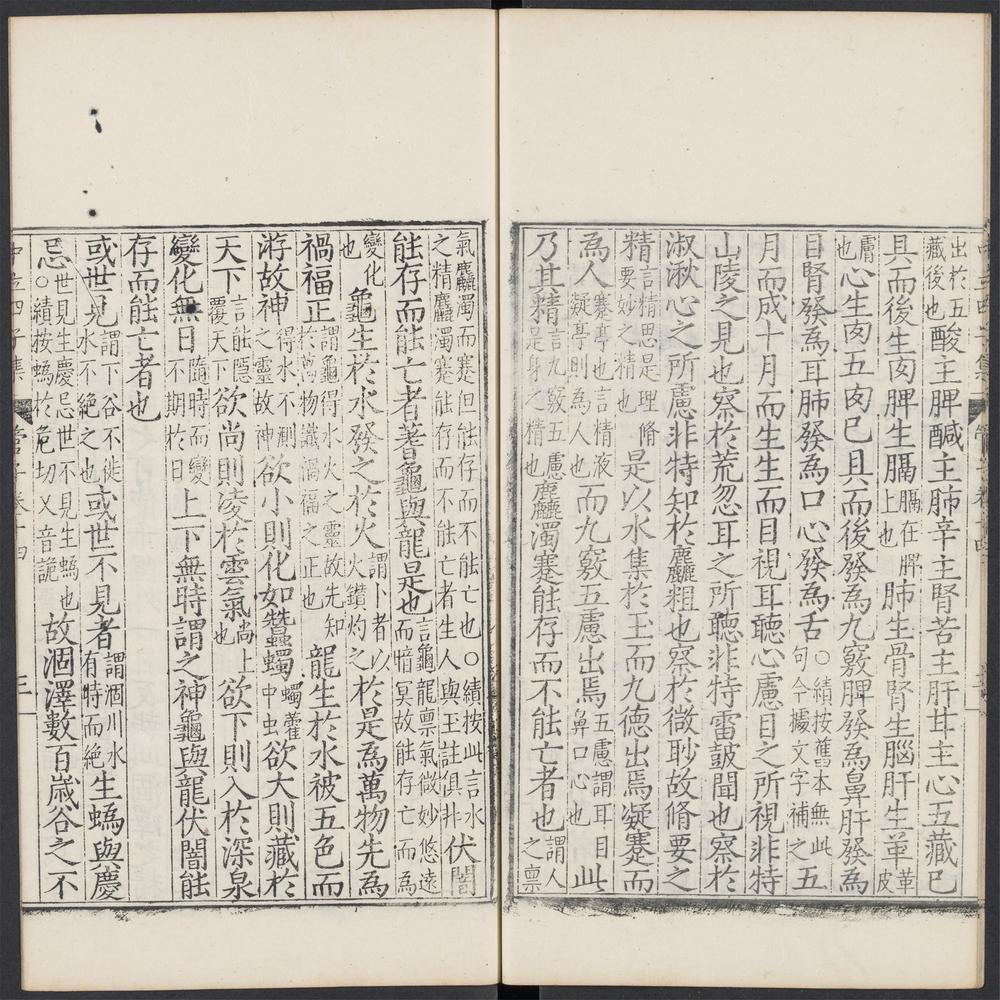 出於五藏後也酸主脾鹹主肺辛主腎苦主肝甘主心五藏已
具而後生肉脾生膈膈在脾上也肺生骨腎生腦肝生革革皮
膚也心生肉五肉已具而後發為九竅脾發為鼻肝發為
目腎發為耳肺發為口心發為舌○績按舊本無此句今據文字補之五
月而成十月而生生而目視耳聽心慮目之所視非特
山陵之見也察於荒忽耳之所聽非特雷鼓聞也察於
淑湫心之所慮非特知於麤粗也察於微眇故脩要之
精言精思是理脩要妙之精也是以水集於玉而九德出焉凝蹇而
為人蹇亭也言精液凝亭則為人也而九竅五慮出焉五慮謂耳目鼻口心也此
乃其精是言九竅五慮是身之精也麤濁蹇能存而不能亡者也謂人之稟
氣麤濁而蹇但能存而不能亡也○績按此言水之精麤濁蹇能存而不能亡者生人與王註俱非伏闇
能存而能亡者蓍龜與龍是也言龜龍稟氣微妙悠遠而暗冥故能存亡而為
變化也龜生於水發之於火謂卜者以火鑽灼之於是為萬物先為
禍福正謂龜得水火之靈故先知於萬物識禍福之正也龍生於水被五色而
游故神得水不測之靈故神欲小則化如蠶蠋蠋藿中虫欲大則藏於
天下言能隱覆天下欲尚則凌於雲氣尚上也欲下則入於深泉
變化無日隨時而變不期於日上下無時謂之神龜與龍伏闇能
存而能亡者也
或世見謂下谷不徙水不絶之也或世不見者謂涸川水有時而絶生蟡與慶
忌世見生慶忌世不見生蟡也○績按蟡於危切又音詭故涸澤數百歲谷之不
中立四子集 管子卷十四 三